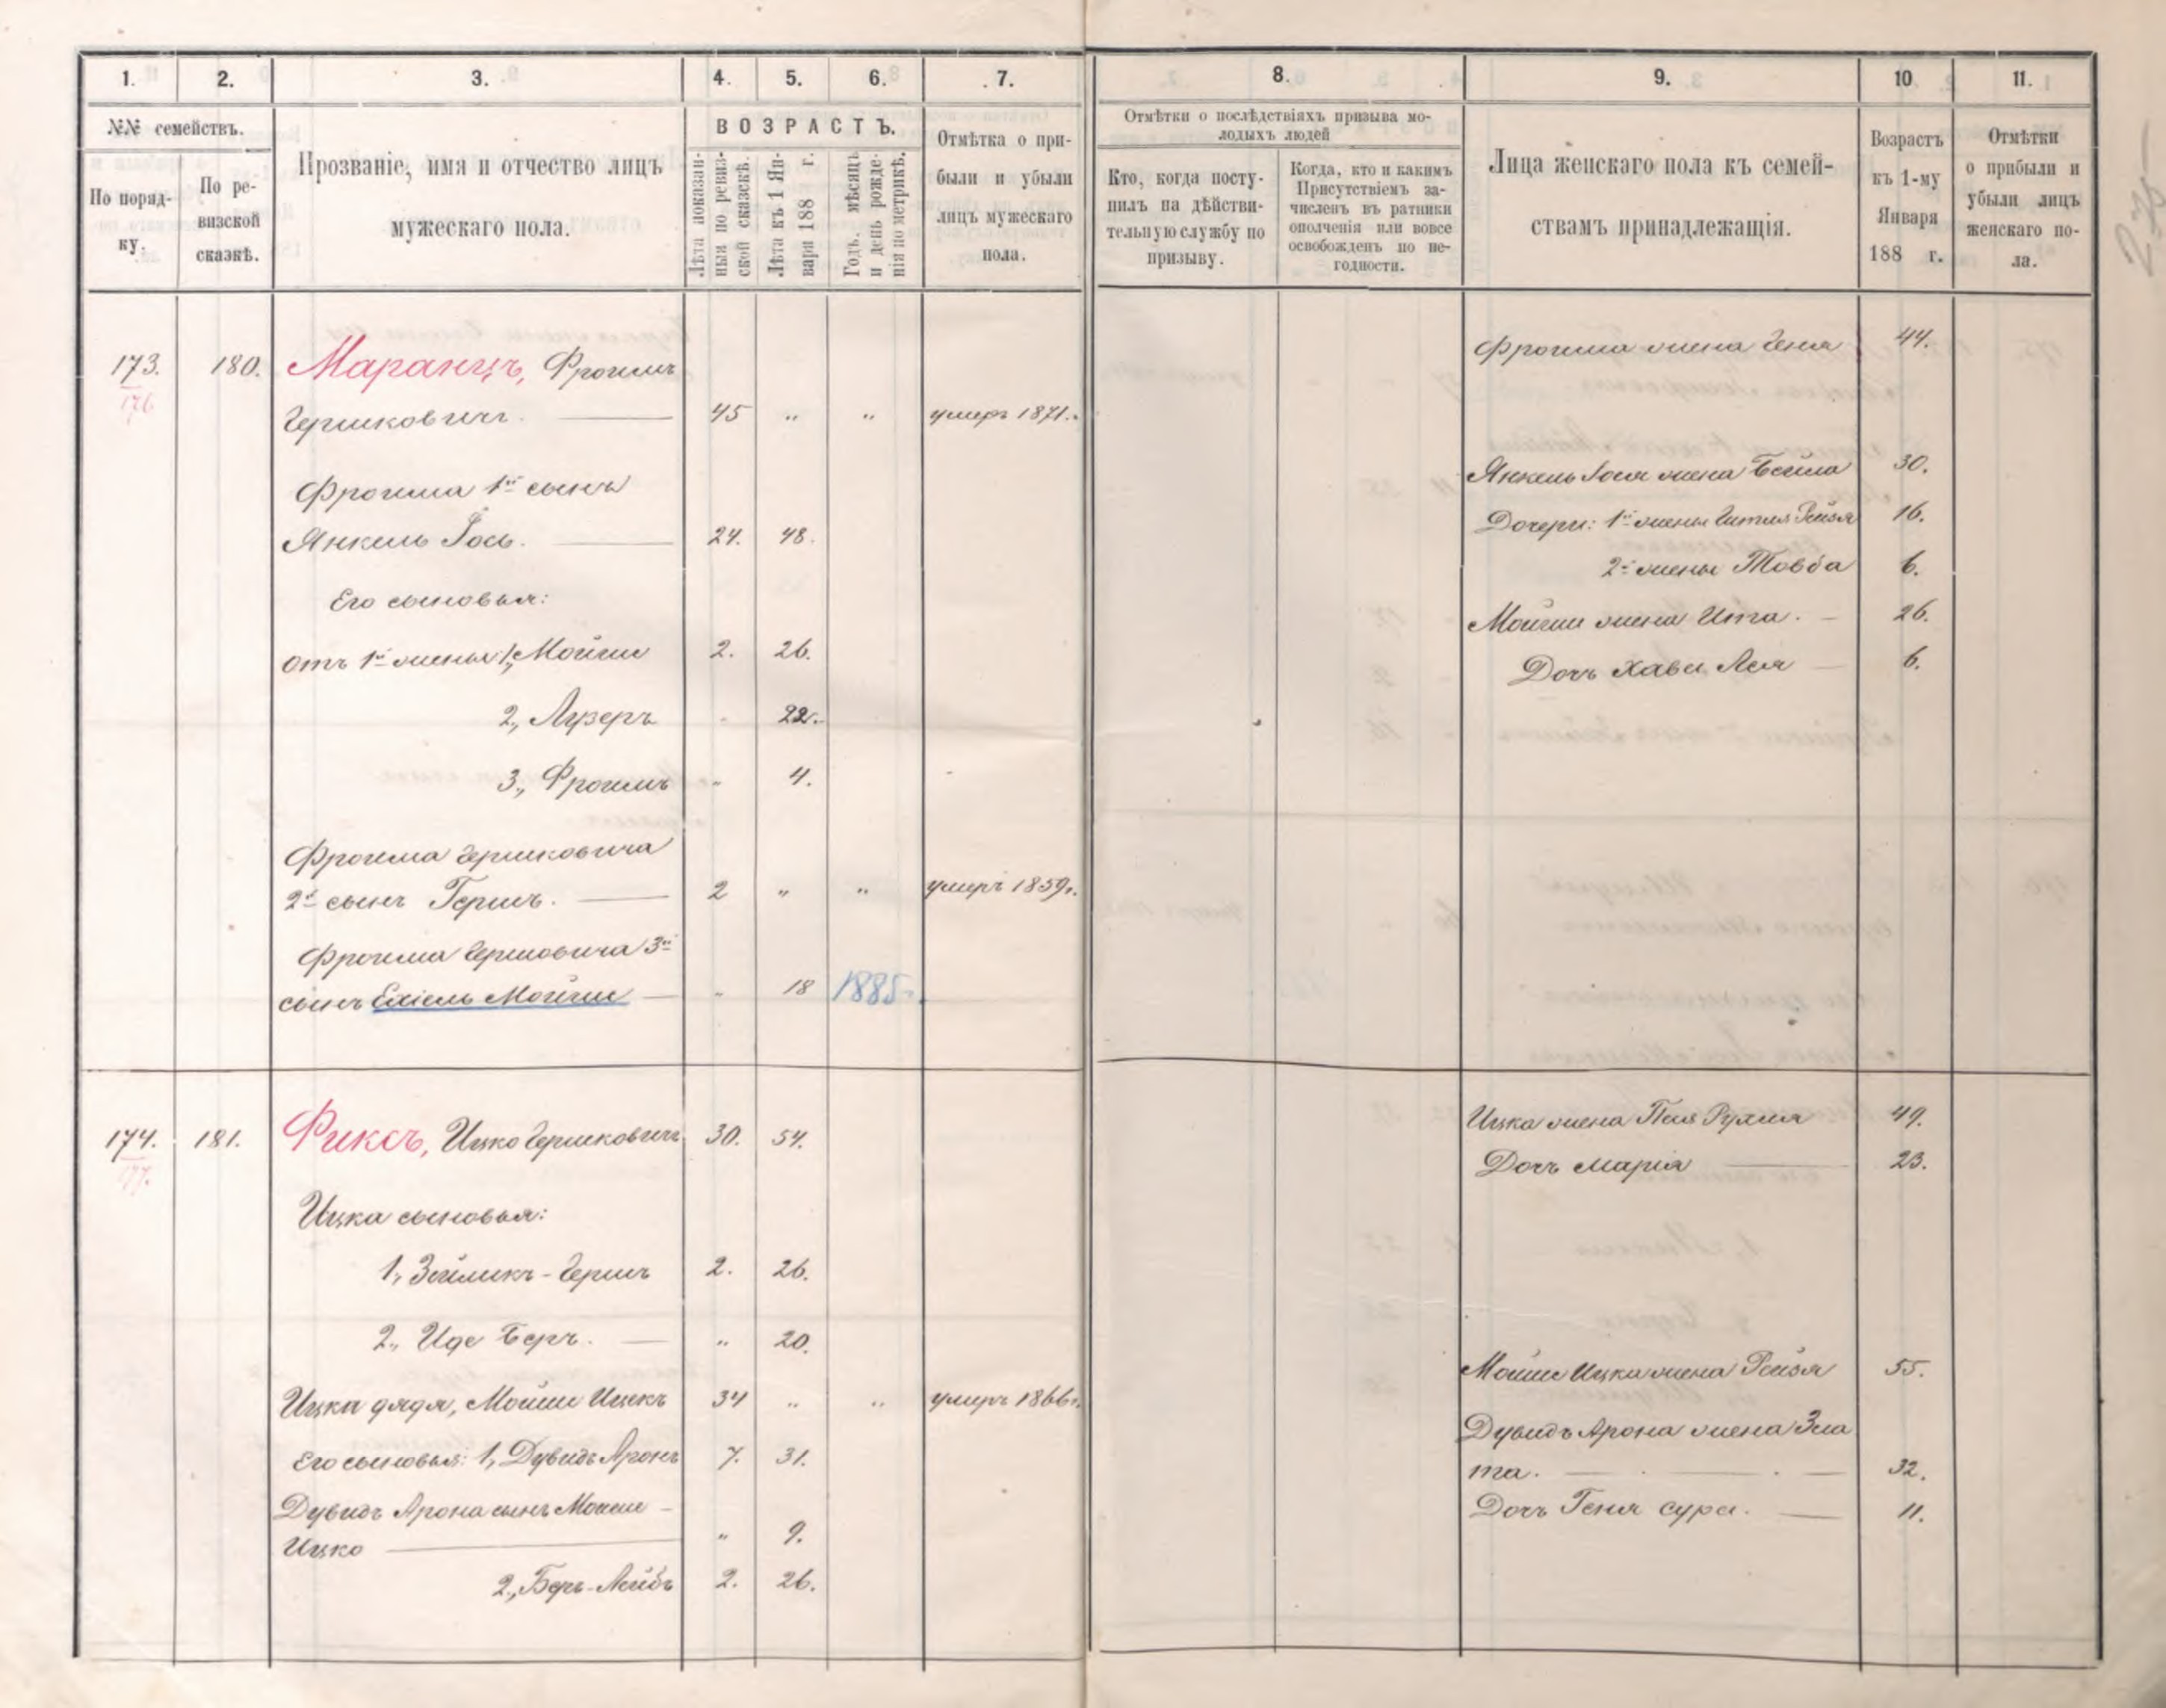 1. 2. 3. 4. 5. 6. 7. 8. 9. 10 11.
№№ семействъ.
По поряд-
ку.
По ре-
визской
сказкѣ.
Прозваніе, имя и отчество лицъ
мужескаго пола.
ВОЗРАСТЪ.
Лѣта показан-
ныя по ревиз-
ской сказкѣ.
Лѣта къ 1 Ян-
варя 188 г.
Годъ, мѣсяцъ
и день рожде-
нія по метрикѣ.
Отмѣтка о при-
были и убыли
лицъ мужескаго
пола.
Отмѣтки о послѣдствіяхъ призыва мо-
лодыхъ людей
Кто, когда посту-
пилъ на дѣйстви-
тельную службу по
призыву.
Когда, кто и какимъ
Присутствіемъ за-
численъ въ ратники
ополченія или вовсе
освобожденъ по не-
годности.
Лица женскаго пола къ семей-
ствамъ принадлежащія.
Возрастъ
къ 1-му
Января
188 г.
Отмѣтки
о прибыли и
убыли лицъ
женскаго по-
ла.
173. 180. Маранцъ, Фроимъ
176
Гершковичъ. 45 " " умеръ 1871г.
Фроима 1й сынъ
Янкель Іось. 24. 48.
Его сыновья:
отъ 1й жены 1, Мойше 2. 26.
2, Лузеръ - 22.
3, Фроимъ " 4.
Фроима Гершковича
2й сынъ Гершъ. 2 " " умеръ 1859г.
Фроима Гершовича 3й
сынъ Ехіель Мойше " 18 1885г.
Фроима жена Геня 44.
Янкель Іося жена Бейла 30.
Дочери: 1й жены Гитля Рейзя 16.
2й жены Товба 6.
Мойше жена Ита. 26.
Дочь Хава Лея 6.
174. 181. Фиксъ, Ицко Гершковичъ 30. 54.
177.
Ицка сыновья:
1, Зейликъ-Гершъ 2. 26.
2, Иде Беръ. " 20.
Ицка дядя, Мойше Ицекъ 34 " " умеръ 1866г.
Его сыновья: 1, Дувидъ Аронъ 7. 31.
Дувидъ Арона сынъ Мойше
Ицко " 9.
2, Беръ-Лейбъ 2. 26.
Ицка жена Пея Рухля 49.
Дочь Марія 23.
Мойше Ицка жена Рейзя 55.
Дувидъ Арона жена Зла
та. 32.
Дочь Геня Сура. 11.